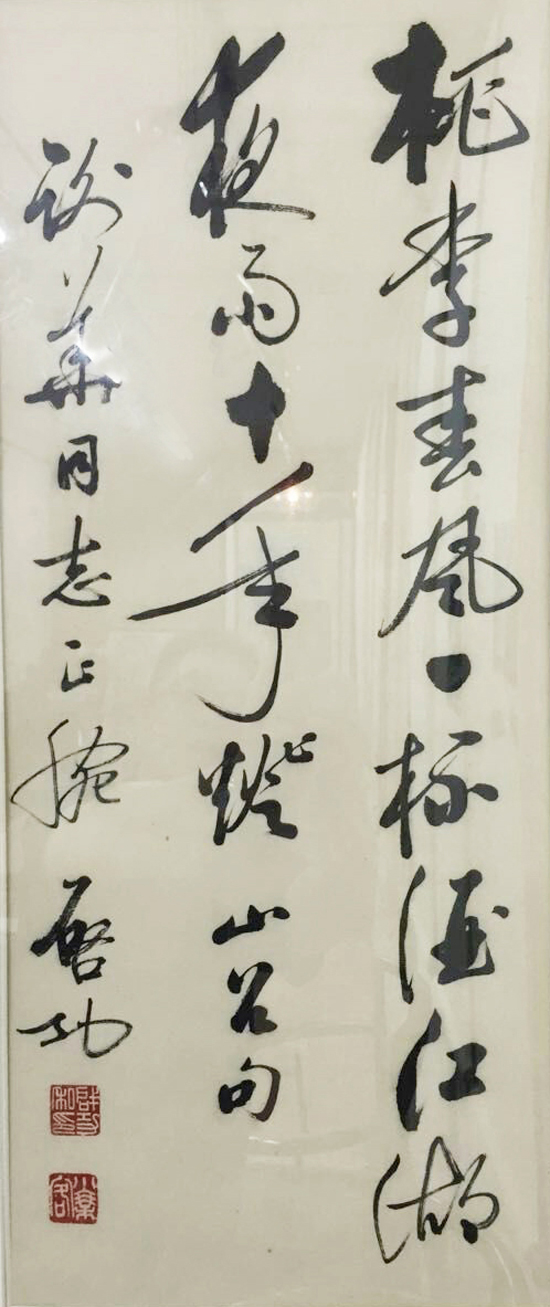 桃李春風一杯酒江湖
夜雨十年燈 山谷句
華同志正腕 啓功